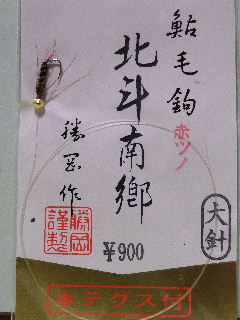 鮎毛鉤
赤ツノ
北斗南郷
勝岡作
勝岡
謹製
大針
¥900
本テグス付